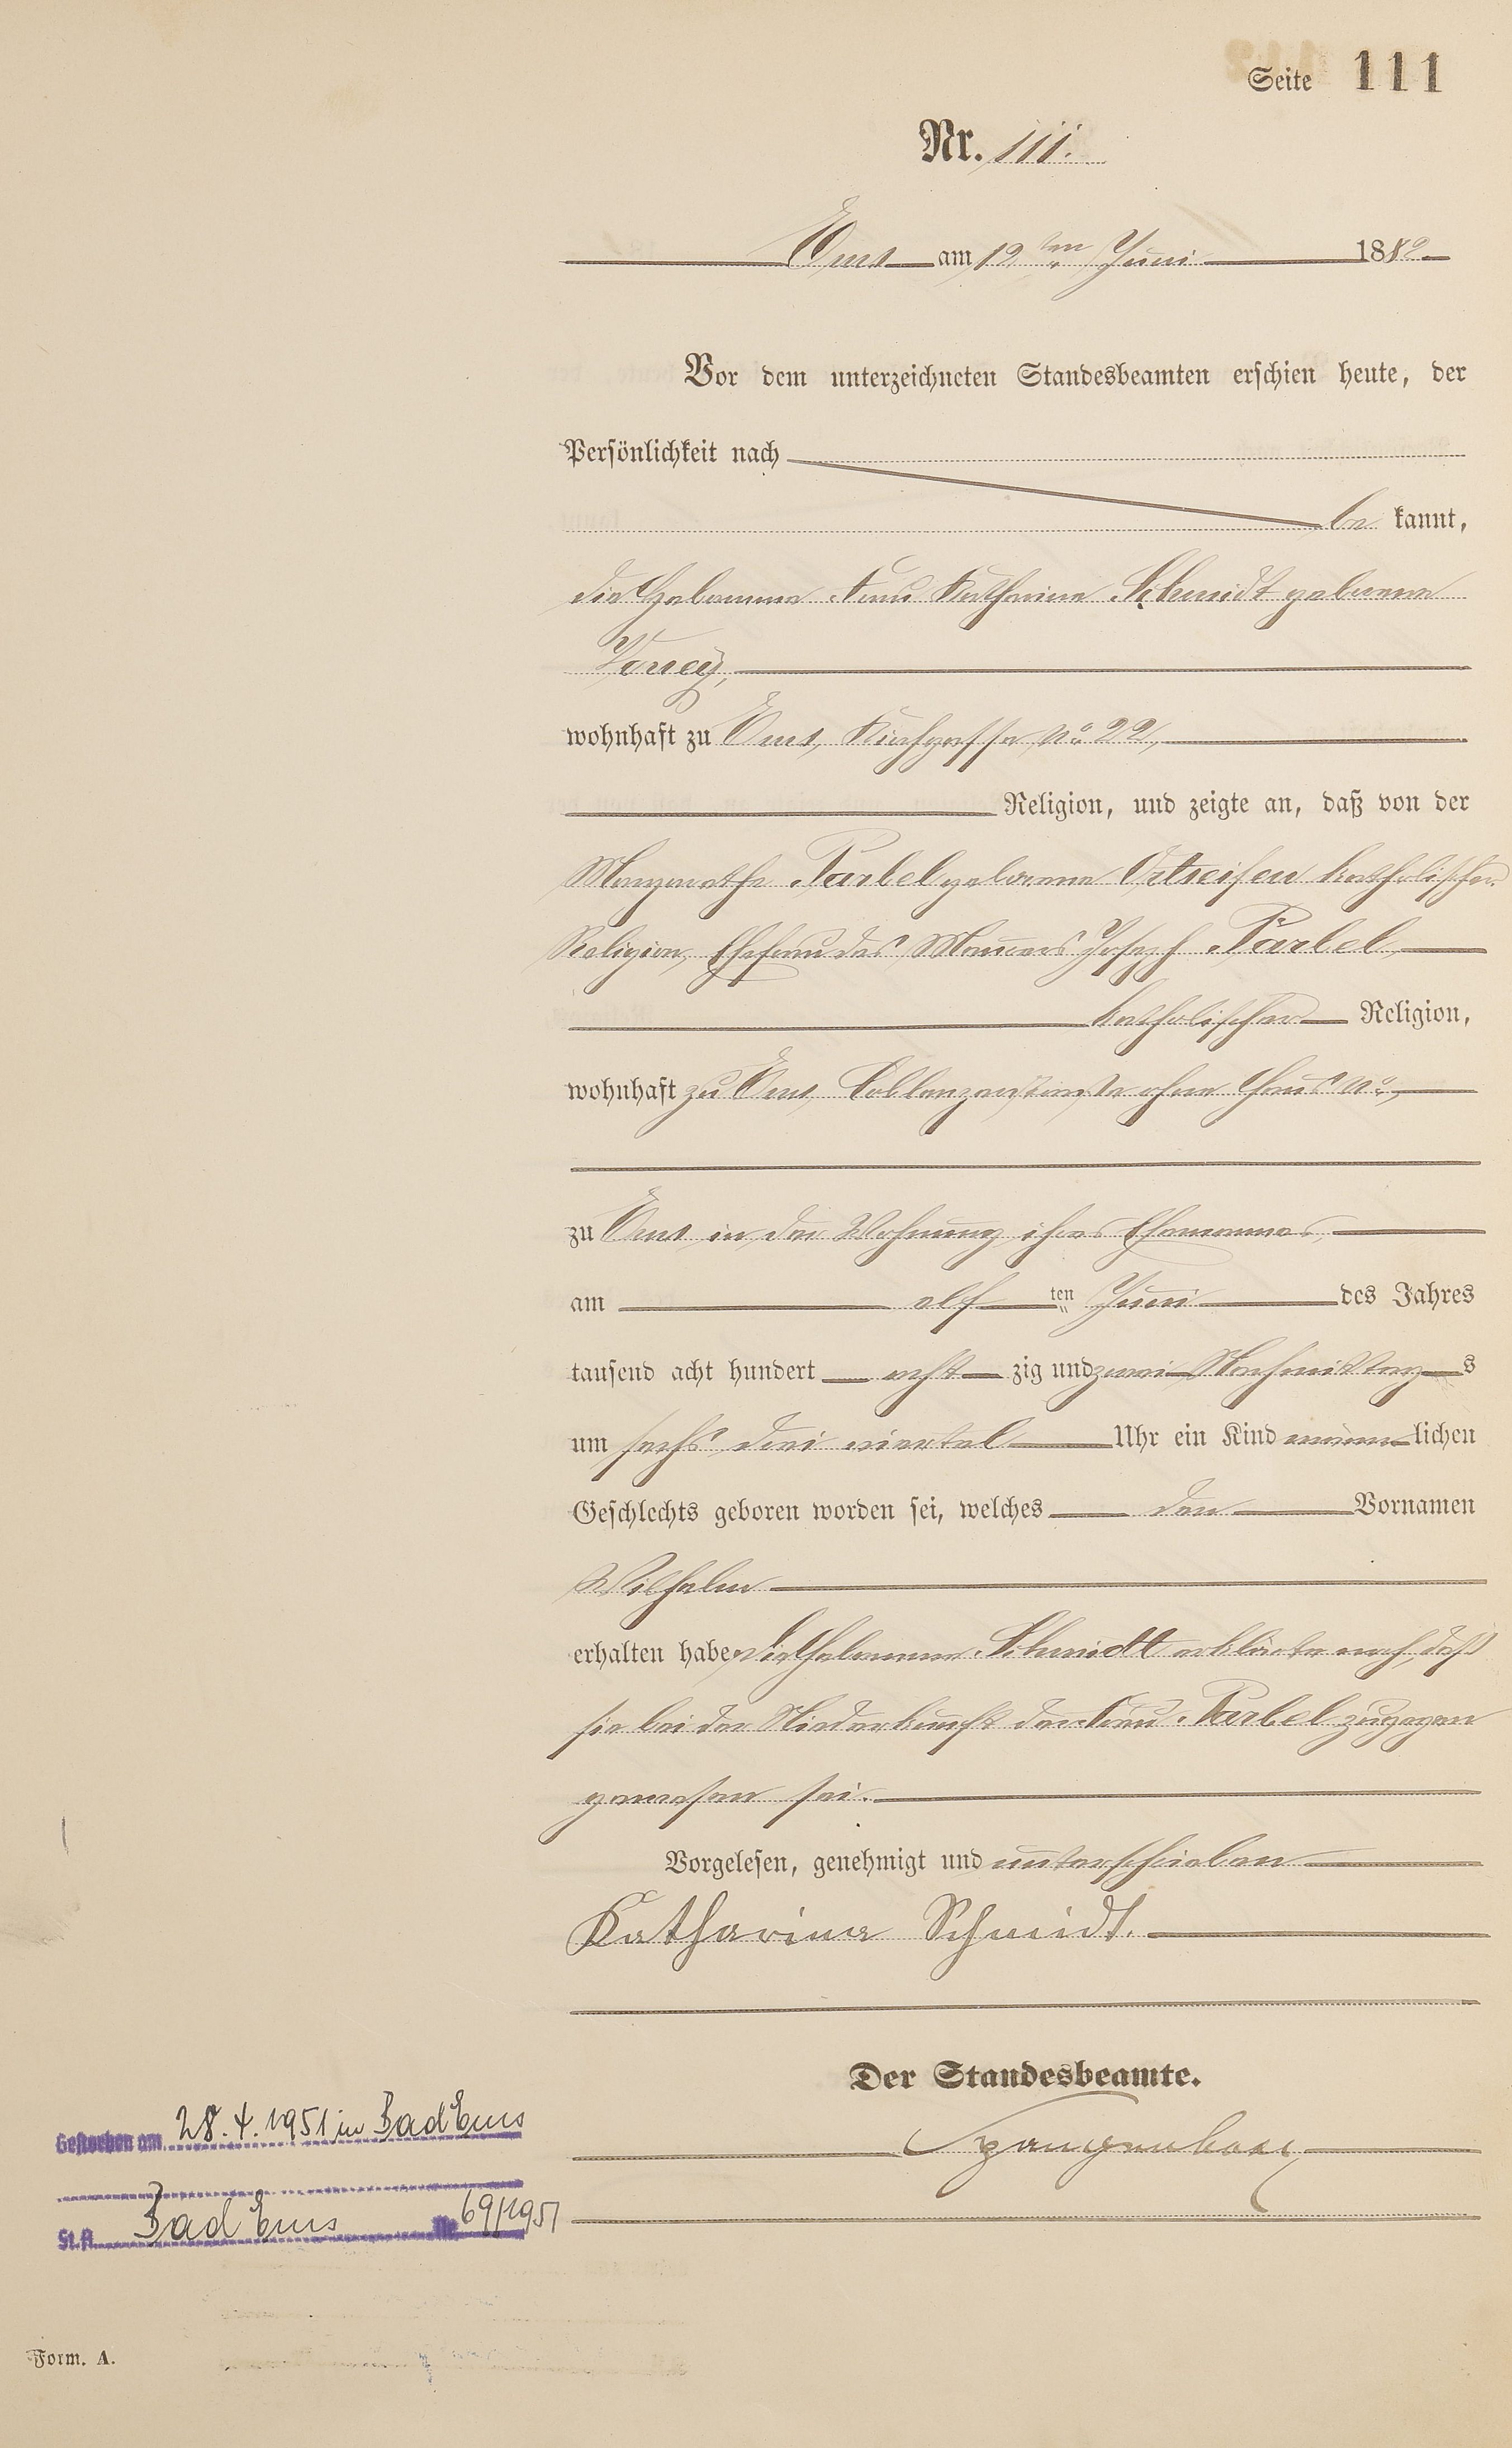 Seite 111
Nr. 111.
Ems am 12ten Juni 1882
Vor dem unterzeichneten Standesbeamten erschien heute, der
Persönlichkeit nach
be kannt,
die Hebamme Frau Katharina Schmidt geborene
wohnhaft zu Ems, Kirchgasse No. 22,
Religion, und zeigte an, daß von der
Margarethe Färbel geborene Ortseifen katholischer
Religion, Ehefrau des Maurers Joseph Färbel
katholischer Religion,
wohnhaft zu Ems, Coblenzerstraße ohne Haus No.,
zu Ems in der Wohnung ihres Ehemannes,
am elf ten Juni des Jahres
tausend acht hundert acht zig und zwei Nachmittags
um sechs drei viertel Uhr ein Kind männlichen
Geschlechts geboren worden sei, welches den Vornamen
Wilhelm
erhalten habe. Die Hebamme Schmidt erklärte noch, daß
sie bei der Niederkunft der Frau Färbel zugegen
gewesen sei.
Vorgelesen, genehmigt und unterschrieben
Katharina Schmidt.
Der Standesbeamte.
Gestorben am 28.4.1951 in Bad Ems
St.A. Bad Ems Nr. 69/1951
Form. A.